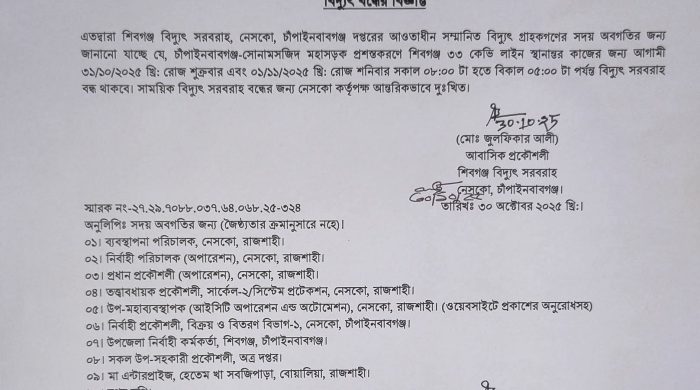 বিদ্যুৎ বন্ধের বিজ্ঞপ্তি
এতদ্বারা শিবগঞ্জ বিদ্যুৎ সরবরাহ, নেসকো, চাঁপাইনবাবগঞ্জ দপ্তরের আওতাধীন সম্মানিত বিদ্যুৎ গ্রাহকগণের সদয় অবগতির জন্য
জানানো যাচ্ছে যে, চাঁপাইনবাবগঞ্জ-সোনামসজিদ মহাসড়ক প্রশস্তকরণে শিবগঞ্জ ৩৩ কেভি লাইন স্থানান্তর কাজের জন্য আগামী
৩১/১০/২০২৫ খ্রি: রোজ শুক্রবার এবং ০১/১১/২০২৫ খ্রি: রোজ শনিবার সকাল ০৮:০০ টা হতে বিকাল ০৫:০০ টা পর্যন্ত বিদ্যুৎ সরবরাহ
বন্ধ থাকবে। সাময়িক বিদ্যুৎ সরবরাহ বন্ধের জন্য নেসকো কর্তৃপক্ষ আন্তরিকভাবে দুঃখিত।
30.10.25
(মোঃ জুলফিকার আলী)
আবাসিক প্রকৌশলী
শিবগঞ্জ বিদ্যুৎ সরবরাহ
নেসকো, চাঁপাইনবাবগঞ্জ।
স্মারক নং-২৭.২৯.৭০৮৮.০৩৭.৬৪.০৬৮.২৫-৩২৪
তারিখঃ ৩০ অক্টোবর ২০২৫ খ্রি:।
অনুলিপিঃ সদয় অবগতির জন্য (জৈষ্ঠ্যতার ক্রমানুসারে নহে)।
০১। ব্যবস্থাপনা পরিচালক, নেসকো, রাজশাহী।
০২। নির্বাহী পরিচালক (অপারেশন), নেসকো, রাজশাহী।
০৩। প্রধান প্রকৌশলী (অপারেশন), নেসকো, রাজশাহী।
০৪। তত্ত্বাবধায়ক প্রকৌশলী, সার্কেল-২/সিস্টেম প্রটেকশন, নেসকো, রাজশাহী।
০৫। উপ-মহাব্যবস্থাপক (আইসিটি অপারেশন এন্ড অটোমেশন), নেসকো, রাজশাহী। (ওয়েবসাইটে প্রকাশের অনুরোধসহ)
০৬। নির্বাহী প্রকৌশলী, বিক্রয় ও বিতরণ বিভাগ-১, নেসকো, চাঁপাইনবাবগঞ্জ।
০৭। উপজেলা নির্বাহী কর্মকর্তা, শিবগঞ্জ, চাঁপাইনবাবগঞ্জ।
০৮। সকল উপ-সহকারী প্রকৌশলী, অত্র দপ্তর।
০৯। মা এন্টারপ্রাইজ, হেতেম খা সবজিপাড়া, বোয়ালিয়া, রাজশাহী।